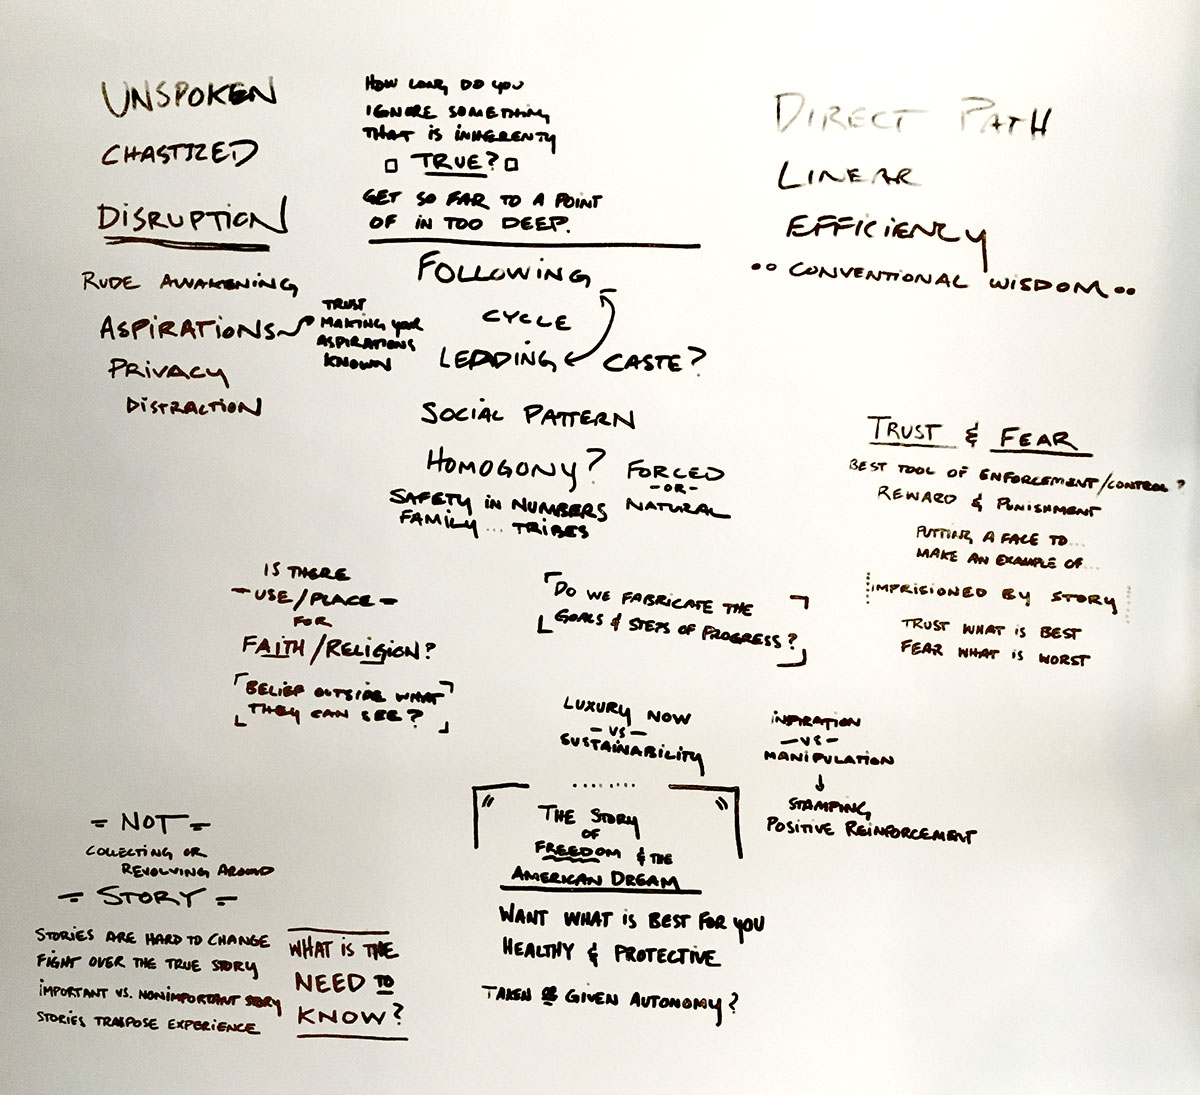 UNSPOKEN
CHASTIZED
DISRUPTION
RUDE AWAKENING
ASPIRATIONS
TRUST
MAKING YOUR
ASPIRATIONS
KNOWN
PRIVACY
DISTRACTION
HOW LONG DO YOU
IGNORE SOMETHING
THAT IS INHERENTY
TRUE?
GET SO FAR TO A POINT
OF IN TOO DEEP.
FOLLOWING
CYCLE
LEADING
CASTE?
SOCIAL PATTERN
HOMOGONY?
FORCED
-OR-
NATURAL
SAFETY IN NUMBERS
FAMILY ... TRIBES
DIRECT PATH
LINEAR
EFFICIENCY
CONVENTIONAL WISDOM
TRUST & FEAR
BEST TOOL OF ENFORCEMENT/CONTROL?
REWARD & PUNISHMENT
PUTTING A FACE TO...
MAKE AN EXAMPLE OF...
IMPRISIONED BY STORY
TRUST WHAT IS BEST
FEAR WHAT IS WORST
IS THERE
- USE/PLACE -
FOR
FAITH/RELIGION?
BELIEF OUTSIDE WHAT
THEY CAN SEE?
DO WE FABRICATE THE
GOALS & STEPS OF PROGRESS?
LUXURY NOW
-VS-
SUSTAINABILITY
INPIRATION
-VS-
MANIPULATION
STAMPING
POSITIVE REINFORCEMENT
THE STORY
OF
FREEDOM & THE
AMERICAN DREAM
WANT WHAT IS BEST FOR YOU
HEALTHY & PROTECTIVE
TAKEN OR GIVEN AUTONOMY?
= NOT =
COLLECTING OR
REVOLVING AROUND
= STORY =
STORIES ARE HARD TO CHANGE
FIGHT OVER THE TRUE STORY
IMPORTANT VS. NONIMPORTANT STORY
STORIES TRASPOSE EXPERIENCE
WHAT IS THE
NEED TO
KNOW?